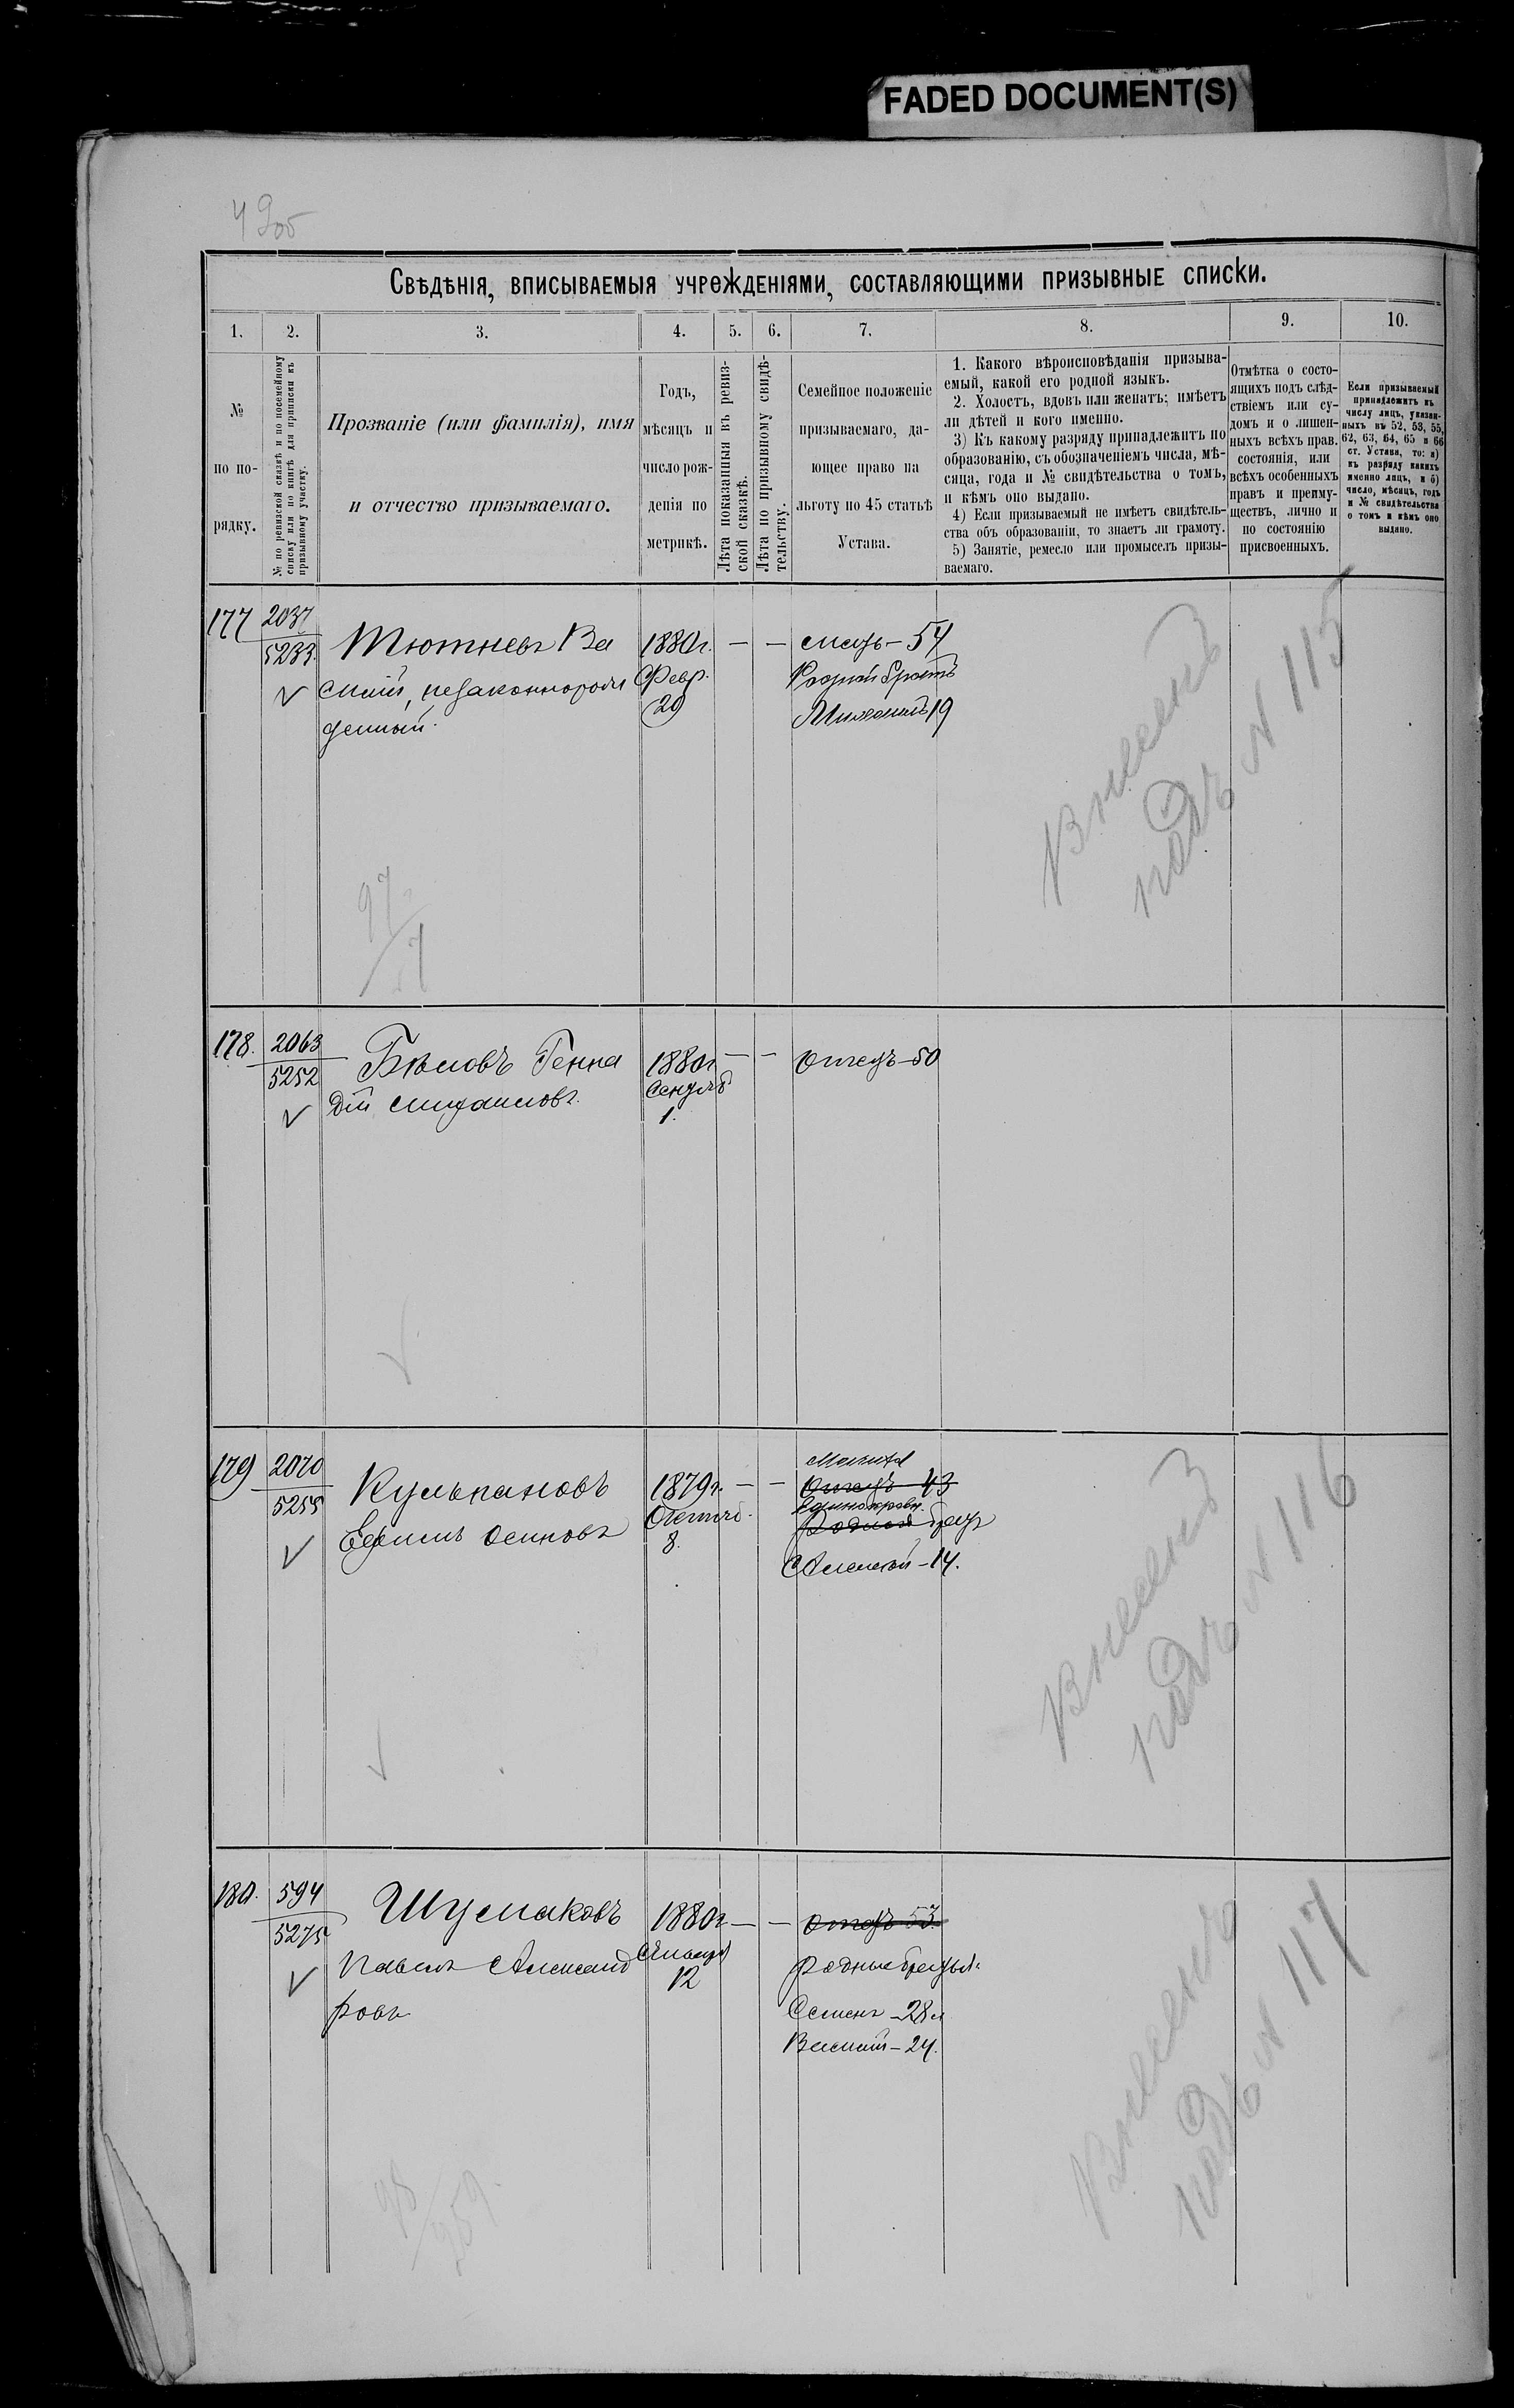 FADED DOCUMENT(S)
Свѣдѣнія, вписываемыя учрежденіями, составляющими призывные списки.
1. 2. 3. 4. 5. 6. 7. 8. 9. 10.
№
по по-
рядку.
№ по ревизской сказкѣ и по посемейному
списку или по книгѣ для приписки къ
призывному участку.
Прозваніе (или фамилія), имя
и отчество призываемаго.
Годъ,
мѣсяцъ и
число рож-
денія по
метрикѣ.
Лѣта показанныя въ ревиз-
ской сказкѣ.
Лѣта по призывному свидѣ-
тельству.
Семейное положеніе
призываемаго, да-
ющее право на
льготу по 45 статьѣ
Устава.
1. Какого вѣроисповѣданія призыва-
емый, какой его родной языкъ.
2. Холостъ, вдовъ или женатъ; имѣетъ
ли дѣтей и кого именно.
3) Къ какому разряду принадлежитъ по
образованію, съ обозначеніемъ числа, мѣ-
сяца, года и № свидѣтельства о томъ,
и кѣмъ оно выдано.
4) Если призываемый не имѣетъ свидѣтель-
ства объ образованіи, то знаетъ ли грамоту.
5) Занятіе, ремесло или промыселъ призы-
ваемаго.
Отмѣтка о состо-
ящихъ подъ слѣд-
ствіемъ или су-
домъ и о лишен-
ныхъ всѣхъ прав.
состоянія, или
всѣхъ особенныхъ
правъ и преиму-
ществъ, лично и
по состоянію
присвоенныхъ.
Если призываемый
принадлежитъ къ
числу лицъ, указан-
ныхъ въ 52, 53, 55,
62, 63, 64, 65 и 66
ст. Устава, то: а)
къ разряду какихъ
именно лицъ, и б)
число, мѣсяцъ, годъ
и № свидѣтельства
о томъ и кѣмъ оно
выдано.
177 2037 Тютневъ Ва 1880г. — — мать — 54
5233 силій, незаконнорож Февр. Родной братъ
денный. 29 Михаилъ 19
Внесенъ
подъ № 115
97
178. 2063 Бѣловъ Генна 1880г — — Отецъ — 50
5252 дій Михаиловъ. Сентяб
1.
179 2070 Кульпановъ 1879г. — — Мачиха
Отецъ 43
5255 Ефимъ Осиповъ Октяб. Единокровн.
8. Родной братъ
Алексѣй — 14.
Внесенъ
подъ № 116
180. 594 Шумаковъ 1880г — — Отецъ 53
5275 Павелъ Александ Января Родные братья:
ровъ 12 Семенъ — 28л
Василій — 24.
Внесенъ
подъ № 117
98